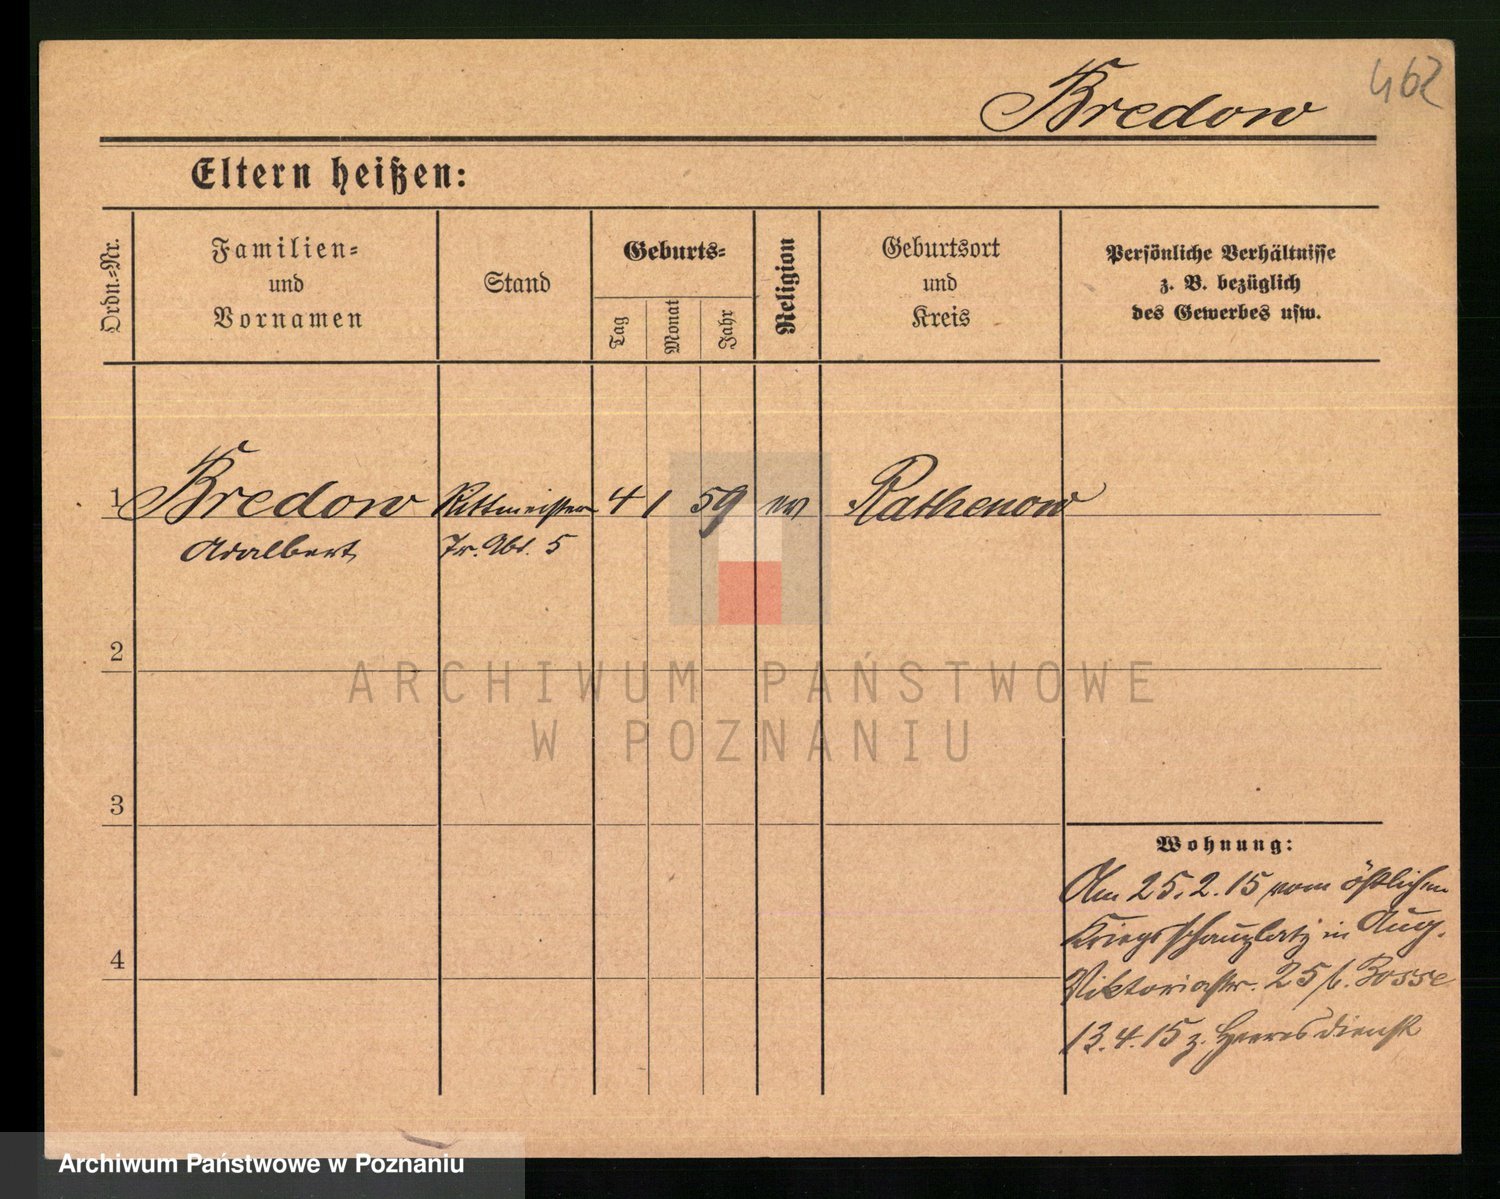 462
Bredow
Eltern heißen:
Ordn.-Nr.
Familien-
und
Vornamen
Stand
Geburts-
Tag
Monat
Jahr
Religion
Geburtsort
und
Kreis
Persönliche Verhältnisse
z. B. bezüglich
des Gewerbes usw.
1 Bredow Rittmeister 4 1 59 ev Rathenow
Adalbert 5
2
3
4
Wohnung:
Am 25.2.15 vom östlichen
Kriegsschauplatz in Aug.
Viktoriastr. 25 b. Bosse
13.4.15 z. Heeresdienst
ARCHIWUM PAŃSTWOWE
W POZNANIU
Archiwum Państwowe w Poznaniu